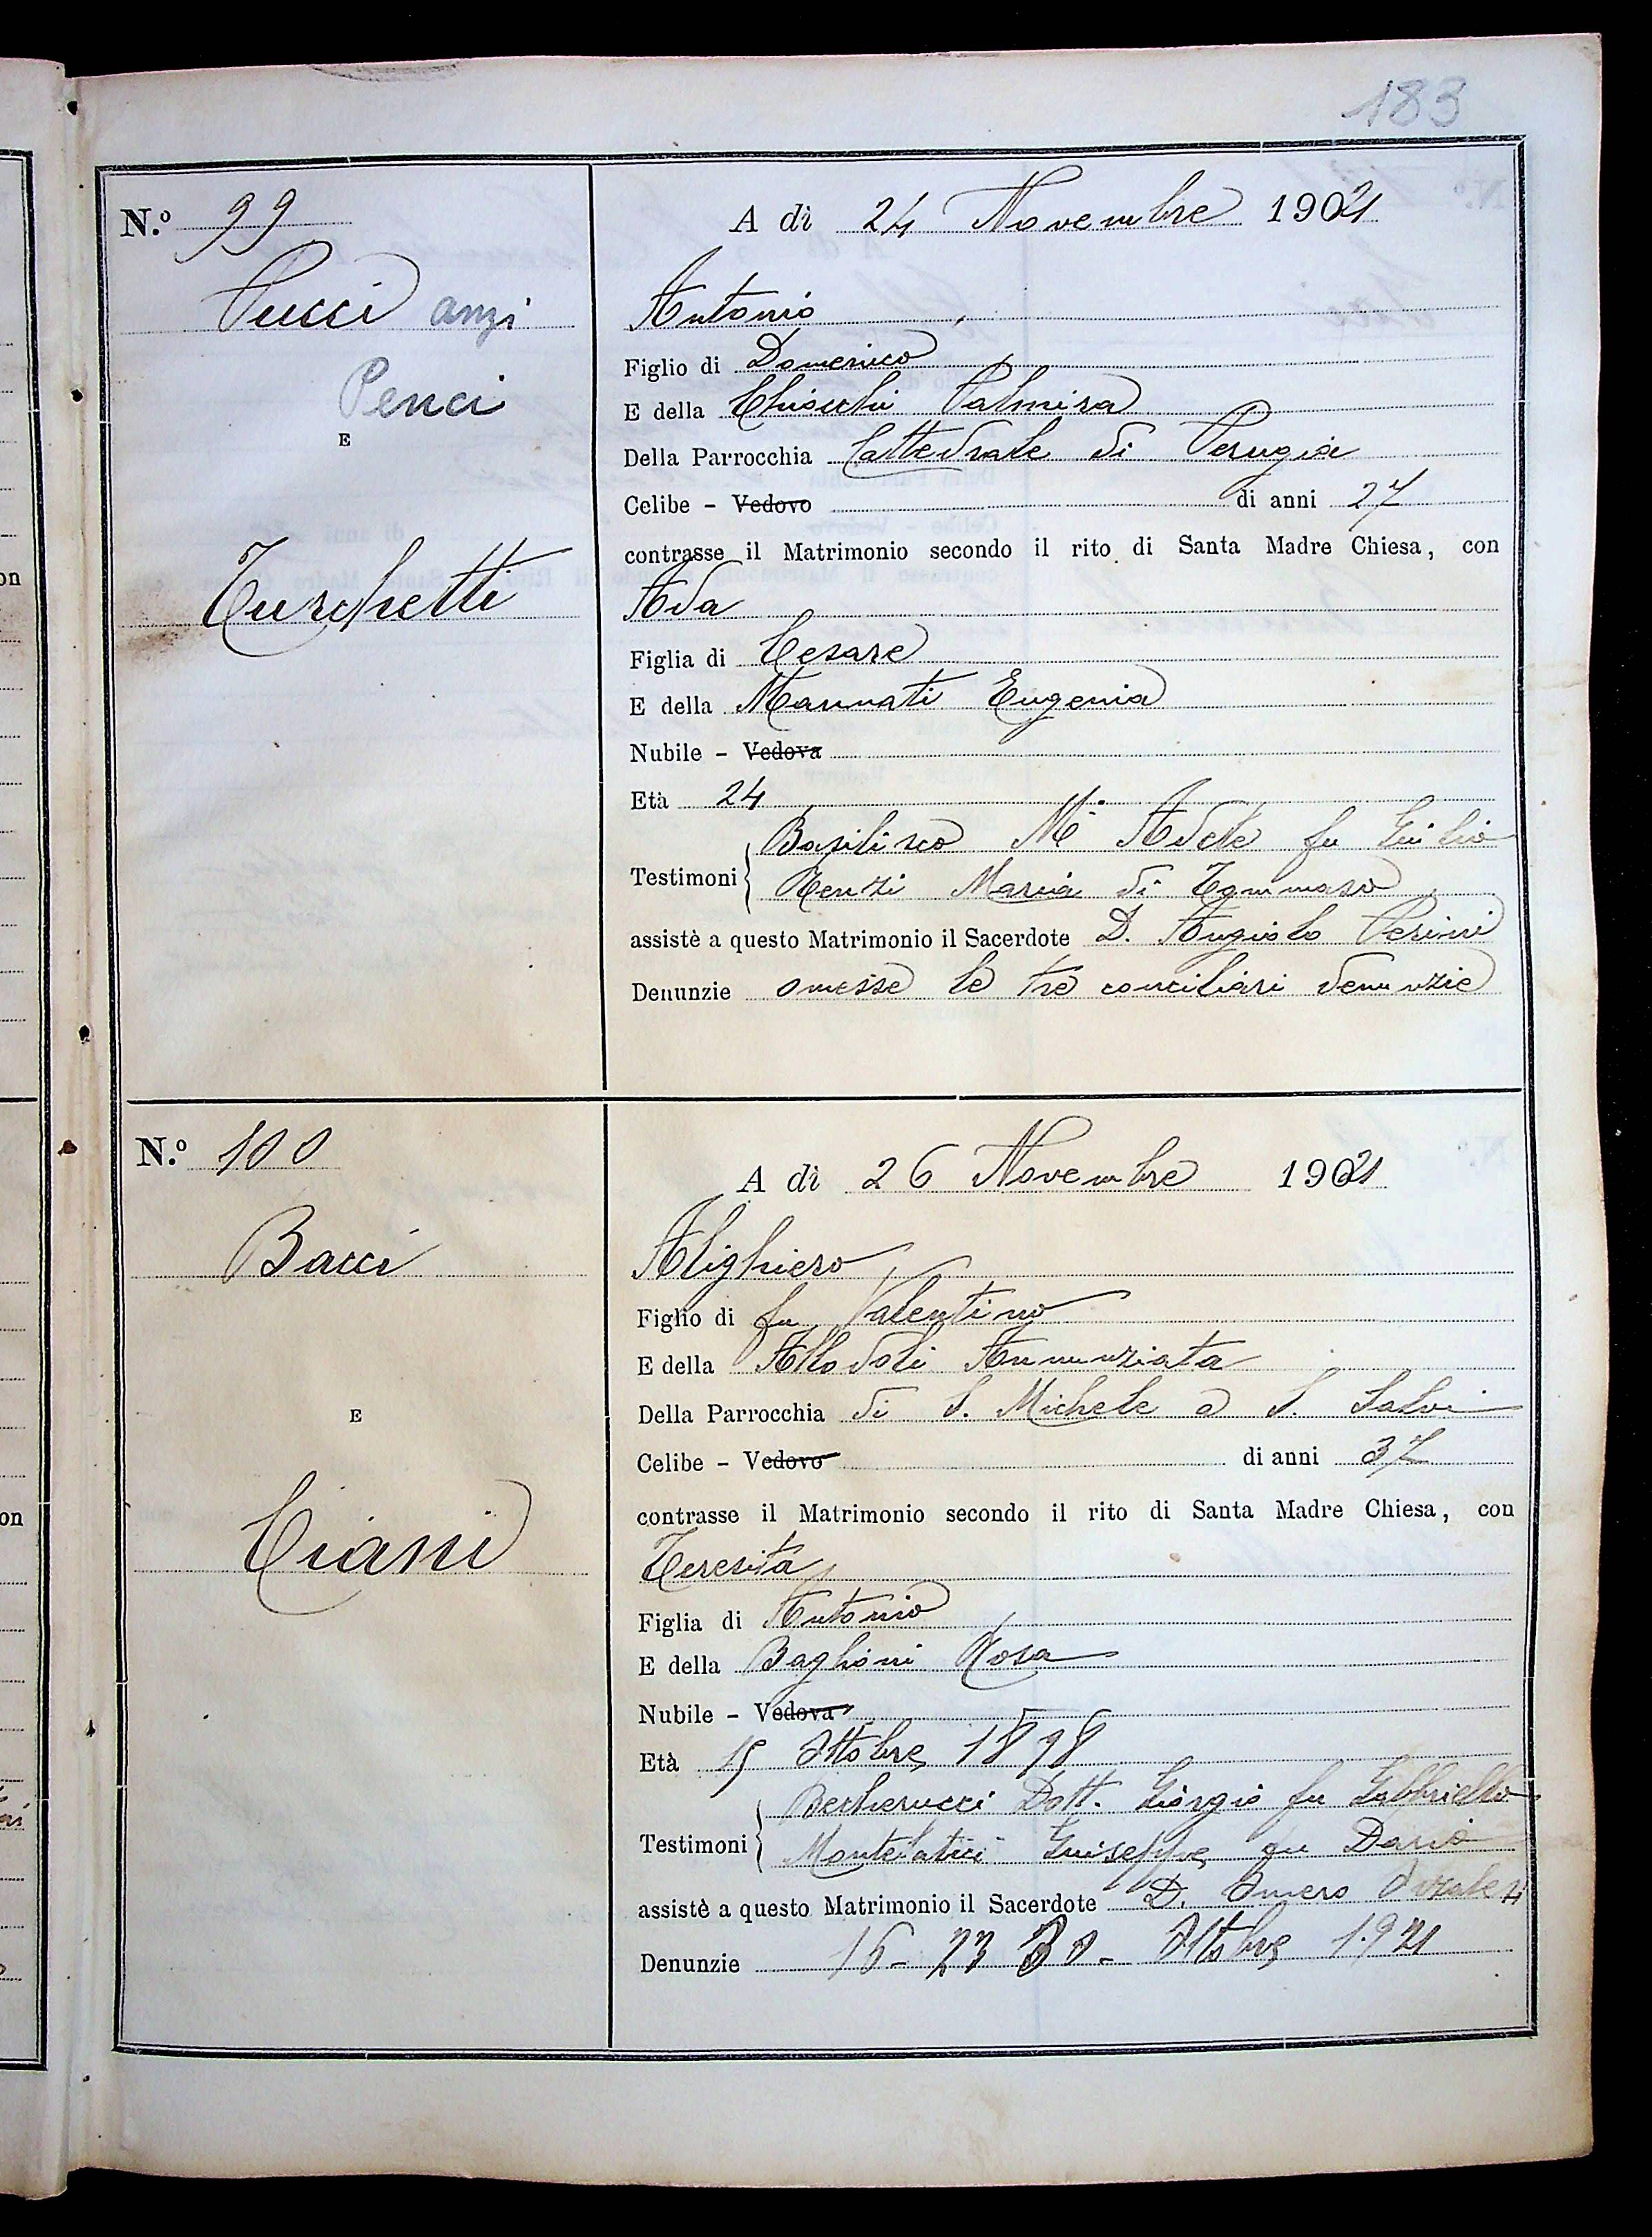 183
N.º 99
A dì 24 Novembre 1921
Pucci anzi
Penci
E
Turchetti
Antonio
Figlio di Domenico
E della Chiocchi Palmira
Della Parrocchia Cattedrale di Perugia
Celibe - Vedovo di anni 27
contrasse il Matrimonio secondo il rito di Santa Madre Chiesa, con
Ada
Figlia di Cesare
E della Mannati Eugenia
Nubile - Vedova
Età 24
Basilisco Mª Adele fu Giulio
Testimoni
Renzi Maria di Tommaso
assistè a questo Matrimonio il Sacerdote D. Angiolo Perini
Denunzie omesse le tre conciliari denunzie
N.º 100
A dì 26 Novembre 1921
Bacci
E
Ciani
Alighiero
Figlio di fu Valentino
E della Allodoli Annunziata
Della Parrocchia di S. Michele a S. Salvi
Celibe - Vedovo di anni 37
contrasse il Matrimonio secondo il rito di Santa Madre Chiesa, con
Teresita
Figlia di Antonio
E della Baglioni Rosa
Nubile - Vedova
Età 15 Ottobre 1898
Becherucci Dott. Giorgio fu Gabbriello
Testimoni
Montelatici Giuseppe fu Dario
assistè a questo Matrimonio il Sacerdote D. Omero
Denunzie 16 - 23 30 - Ottobre 1921